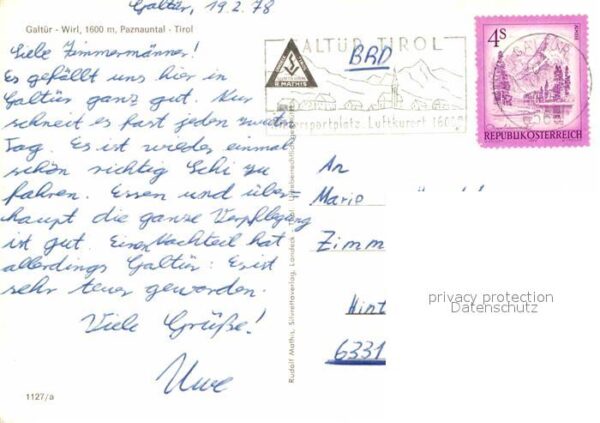 Galtür, 19.2.78
Galtür - Wirl, 1600 m, Paznauntal - Tirol
Liebe Zimmermänner!
Es gefällt uns hier in
Galtür ganz gut. Nur
schneit es fast jeden zweiten
Tag. Es ist wieder einmal
schön richtig Schi zu
fahren. Essen und über-
haupt die ganze Verpflegung
ist gut. Einen Nachteil hat
allerdings Galtür: Es ist
sehr teuer geworden.
Viele Grüße!
Uwe
1127/a
Rudolf Mathis, Silvrettaverlag, Landeck - Tirol
R. MATHIS
GALTÜR TIROL
BRD
Wintersportplatz, Luftkurort 1600
4 S
REPUBLIK ÖSTERREICH
An
Mario
Zimm
Hint
6331
privacy protection
Datenschutz